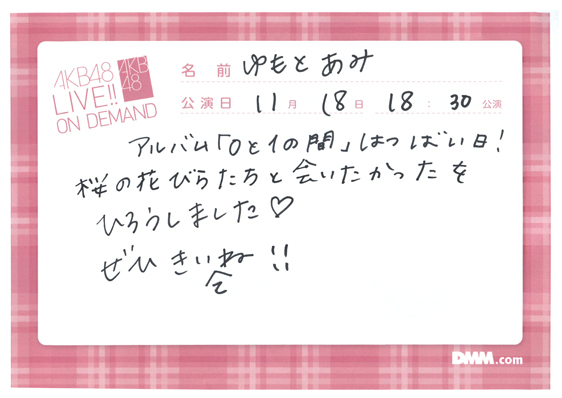 AKB48
LIVE!!
ON DEMAND
AKB
48
名前 ゆもとあみ
公演日 11月 18日 18:30公演
アルバム「0と1の間」はつばい日!
桜の花びらたちと会いたかったを
ひろうしました♡
ぜひ きいね!!
て
DMM.com